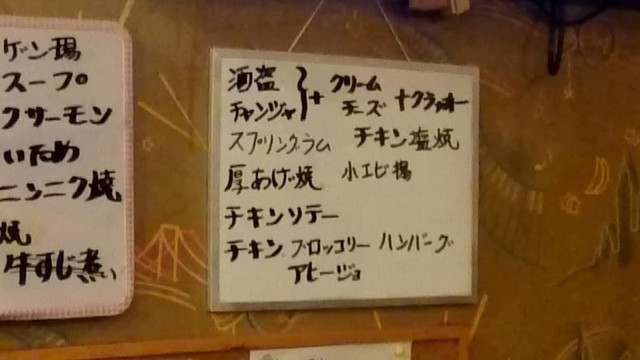 ゲン揚
スープ
クサーモン
いため
ニンニク焼
焼
牛すじ煮
酒盗 } + クリーム
チャンジャ チーズ + クラッカー
スプリングラム チキン塩焼
厚あげ焼 小エビ揚
チキンソテー
チキン、ブロッコリー ハンバーグ
アヒージョ